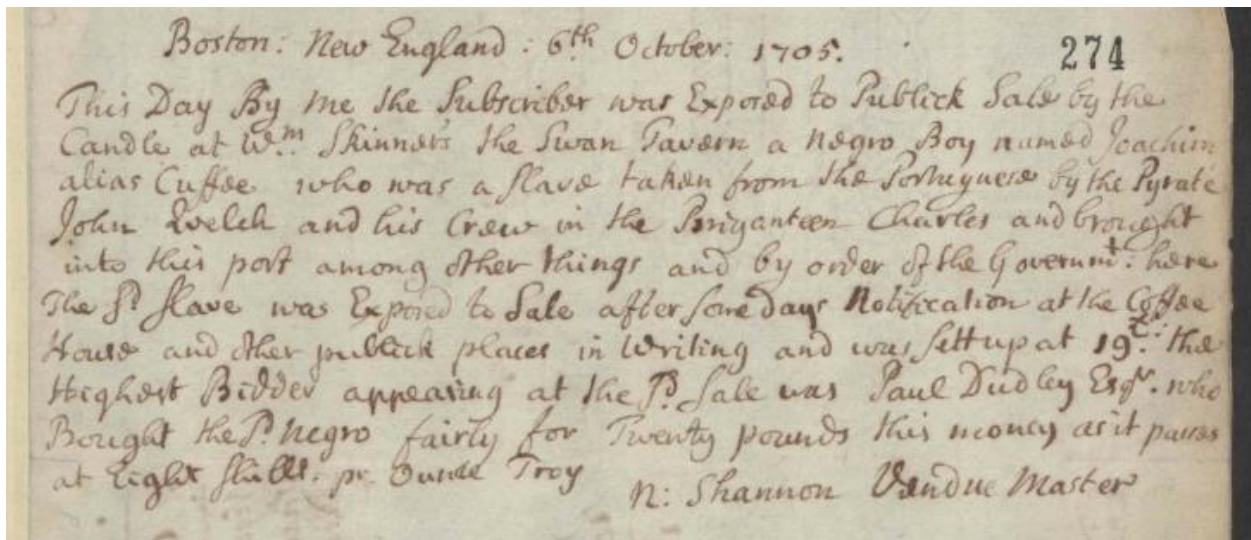 Boston: New England: 6th October: 1705.
274
This Day By me the Subscriber was Exposed to Publick Sale by the
Candle at Wm. Skinners the Swan Tavern a Negro Boy named Joachim
alias Cuffee who was a slave taken from the Portuguese by the Pyrate
John Quelch and his Crew in the Briganteen Charles and brought
into this port among other things and by order of the Governmt: here
The sd. slave was Exposed to Sale after some days Notification at the Coffee
House and other publick places in Writing and was sett up at 19£: the
Highest Bidder appearing at the sd. Sale was Paul Dudley Esqr. who
Bought the sd. Negro fairly for Twenty pounds this money as it passes
at Eight shills. pr. Ounce Troy
N: Shannon Vendue Master